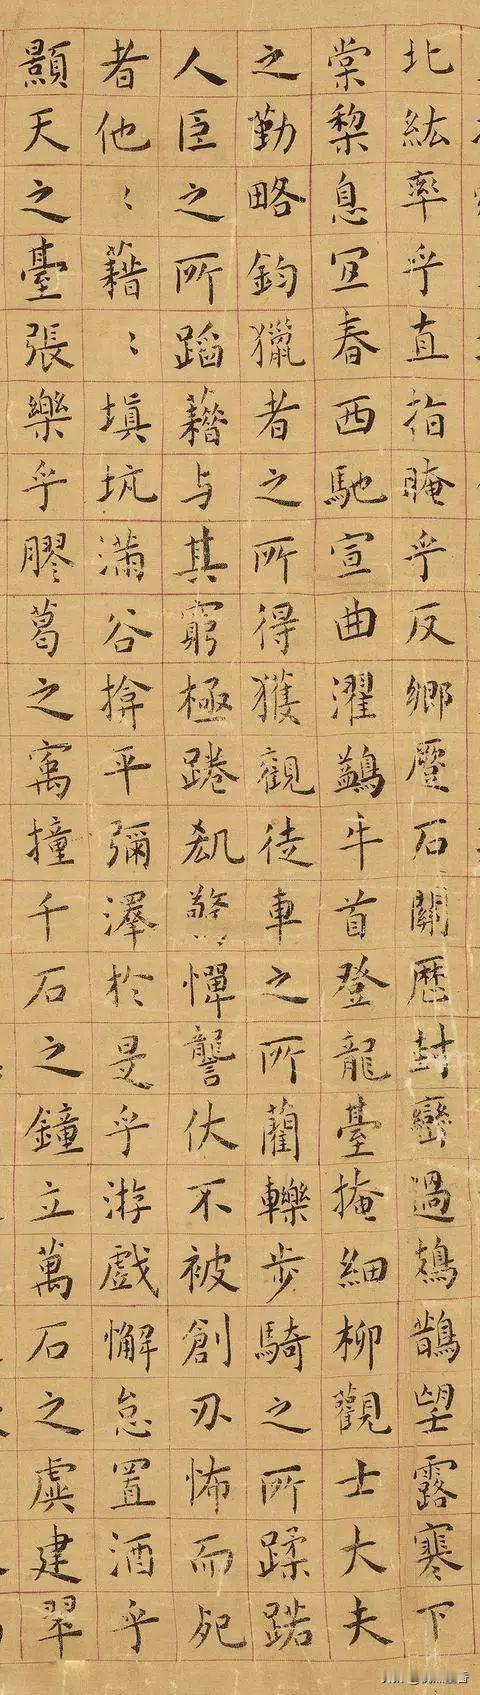 北紘率乎直指晻乎反鄉蹷石關歷封巒過鳷鵲望露寒下
棠棃息宜春西馳宣曲濯鷁牛首登龍臺掩細柳觀士大夫
之勤略鈞獵者之所得獲觀徒車之所藺轢步騎之所蹂蹃
人臣之所蹈藉與其窮極踡㕁驚憚讋伏不被創刃怖而死
者他〻藉〻填坑滿谷揜平彌澤於是乎游戲懈怠置酒乎
顥天之臺張樂乎膠葛之寓撞千石之鐘立萬石之虡建翠